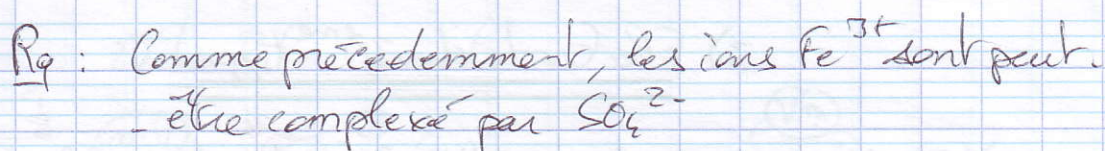 Rq : Comme précedemment, les ions Fe³⁺ sont peut-
-être complexé par SO₄²⁻